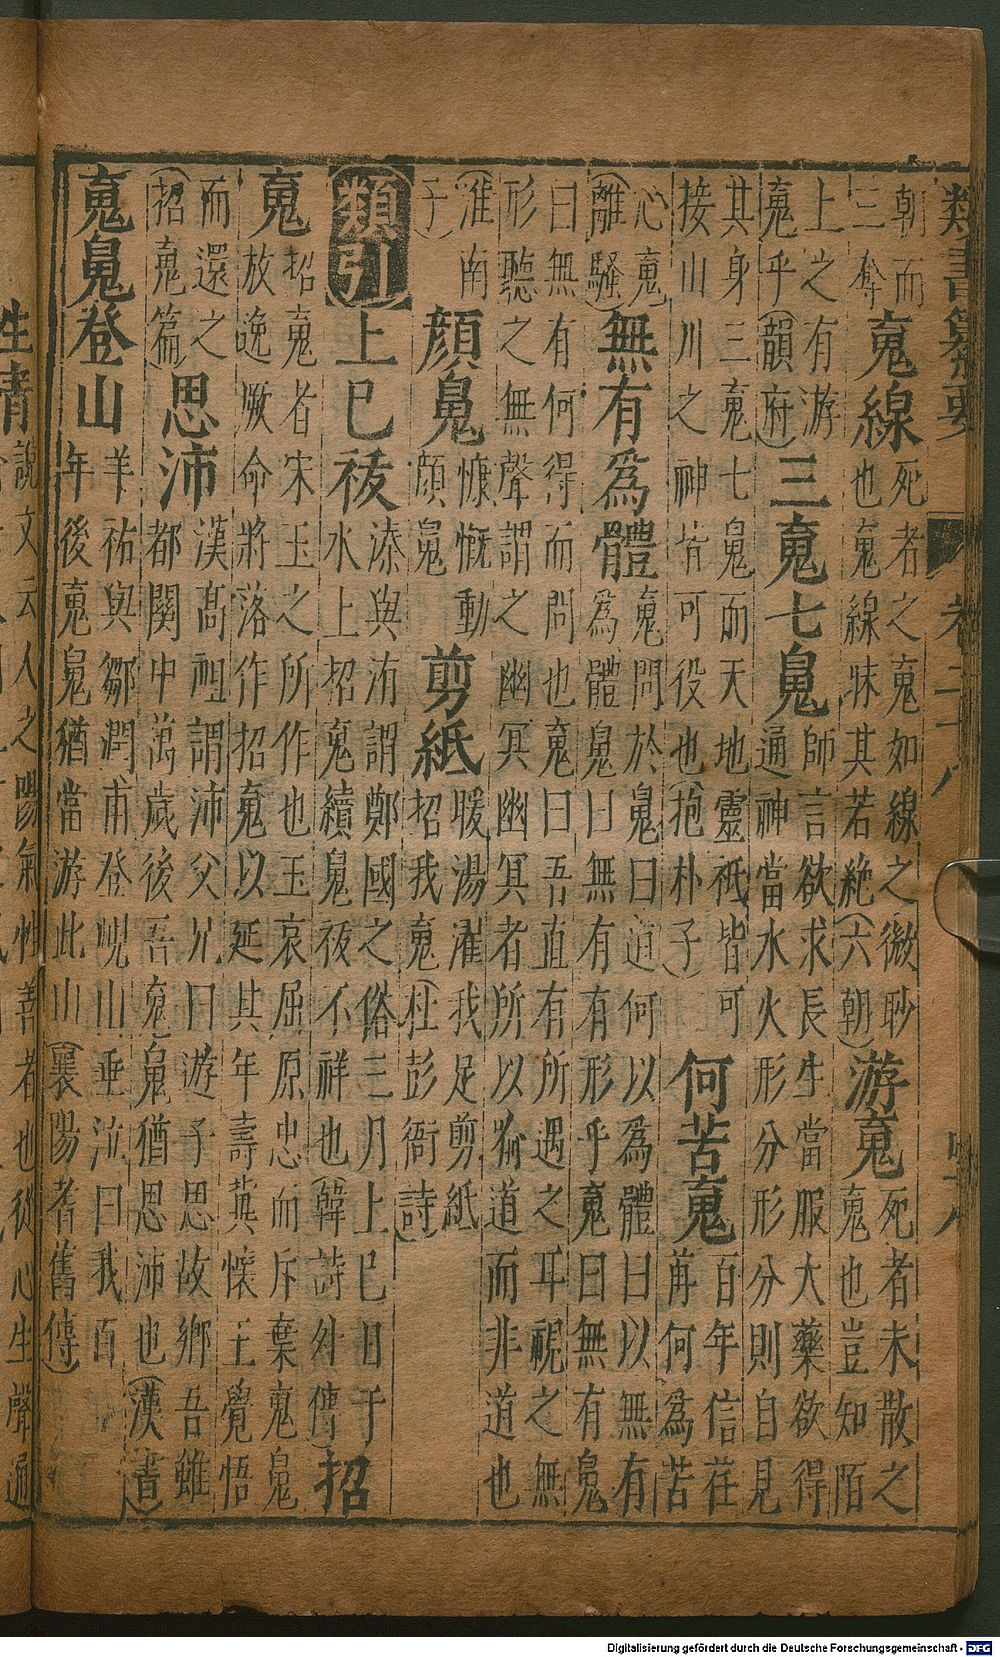 類書纂要 卷二十八
朝而
三奪
䰟線
死者之䰟如線之微眇
也䰟線昧其若絶(六朝)
游䰟
死者未散之
䰟也豈知陌
上之有游
䰟乎(韻府)
三䰟七魄
師言欲求長生當服大藥欲得
通神當水火形分形分則自見
其身三䰟七魄而天地靈祗皆可
接山川之神皆可役也(抱朴子)
何苦䰟
百年信荏
苒何為苦
心䰟
(離騷)
無有爲體
䰟問於魄曰道何以爲體曰以無有
爲體魄曰無有有形乎䰟曰無有魄
曰無有何得而問也䰟曰吾直有所遇之耳視之無
形聽之無聲謂之幽冥幽冥者所以喻道而非道也
(淮南
子)
顔魄
慷慨動
顔魄
剪紙
暖湯濯我足剪紙
招我䰟(杜彭衙詩)
類引
上巳祓
溱與洧謂鄭國之俗三月上巳日于
水上招䰟續魄祓不祥也(韓詩外傳)
招
䰟
招䰟者宋玉之所作也玉哀屈原忠而斥棄䰟魄
放逸厥命將落作招䰟以延其年壽兾懷王覺悟
而還之
(招䰟篇)
思沛
漢高祖謂沛父兄曰游子思故鄉吾雖
都關中萬歲後吾䰟魄猶思沛也(漢書)
䰟魄登山
羊祜與鄒潤甫登峴山垂泣曰我百
年後䰟魄猶當游此山(襄陽耆舊傳)
性情
說文云人之陽氣性善者也從心生聲通
Digitalisierung gefördert durch die Deutsche Forschungsgemeinschaft - DFG